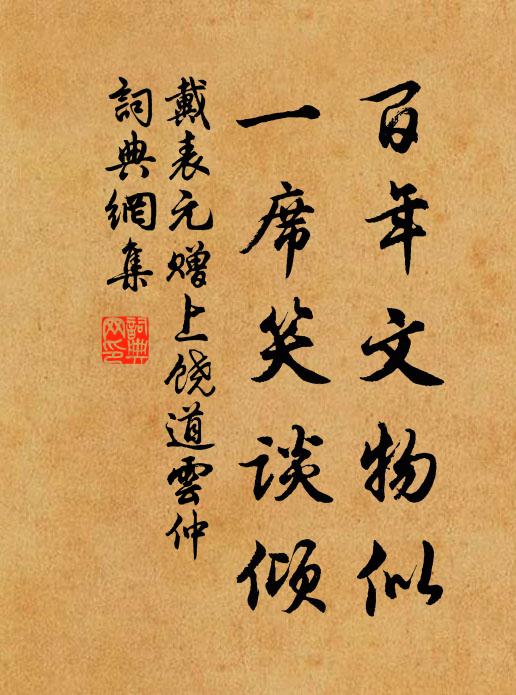 百年文物似
一席笑谈倾
戴表元赠上饶道雲仲
詞典網集
詞典網印